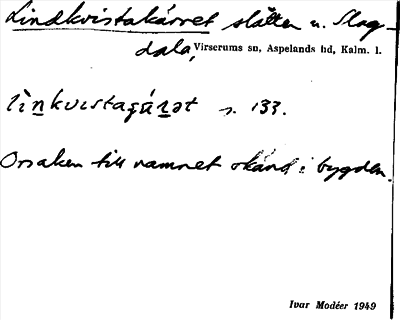 Lindkvistakärret slåtten u. Slag-
dala, Virserums sn, Aspelands hd, Kalm. l.
lìn̲kvıstaçár̲ət s. 133.
Orsaken till namnet okänd i bygden.
Ivar Modéer 1949